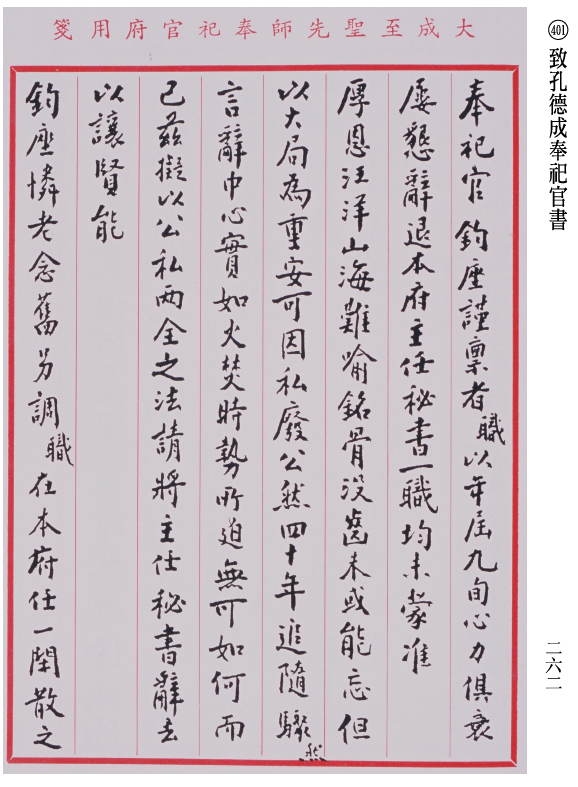 401 致孔德成奉祀官書
大成至聖先師奉祀官府用箋
奉祀官鈞座謹稟者職以年屆九旬心力俱衰
屢懇辭退本府主任秘書一職均未蒙准
厚恩汪洋山海難喻銘骨没齒未或能忘但
以大局為重安可因私廢公然四十年追隨驟然
言辭中心實如火焚時勢所迫無可如何而
已茲擬以公私兩全之法請將主任秘書辭去
以讓賢能
鈞座憐老念舊另調職在本府任一閑散之
二六二